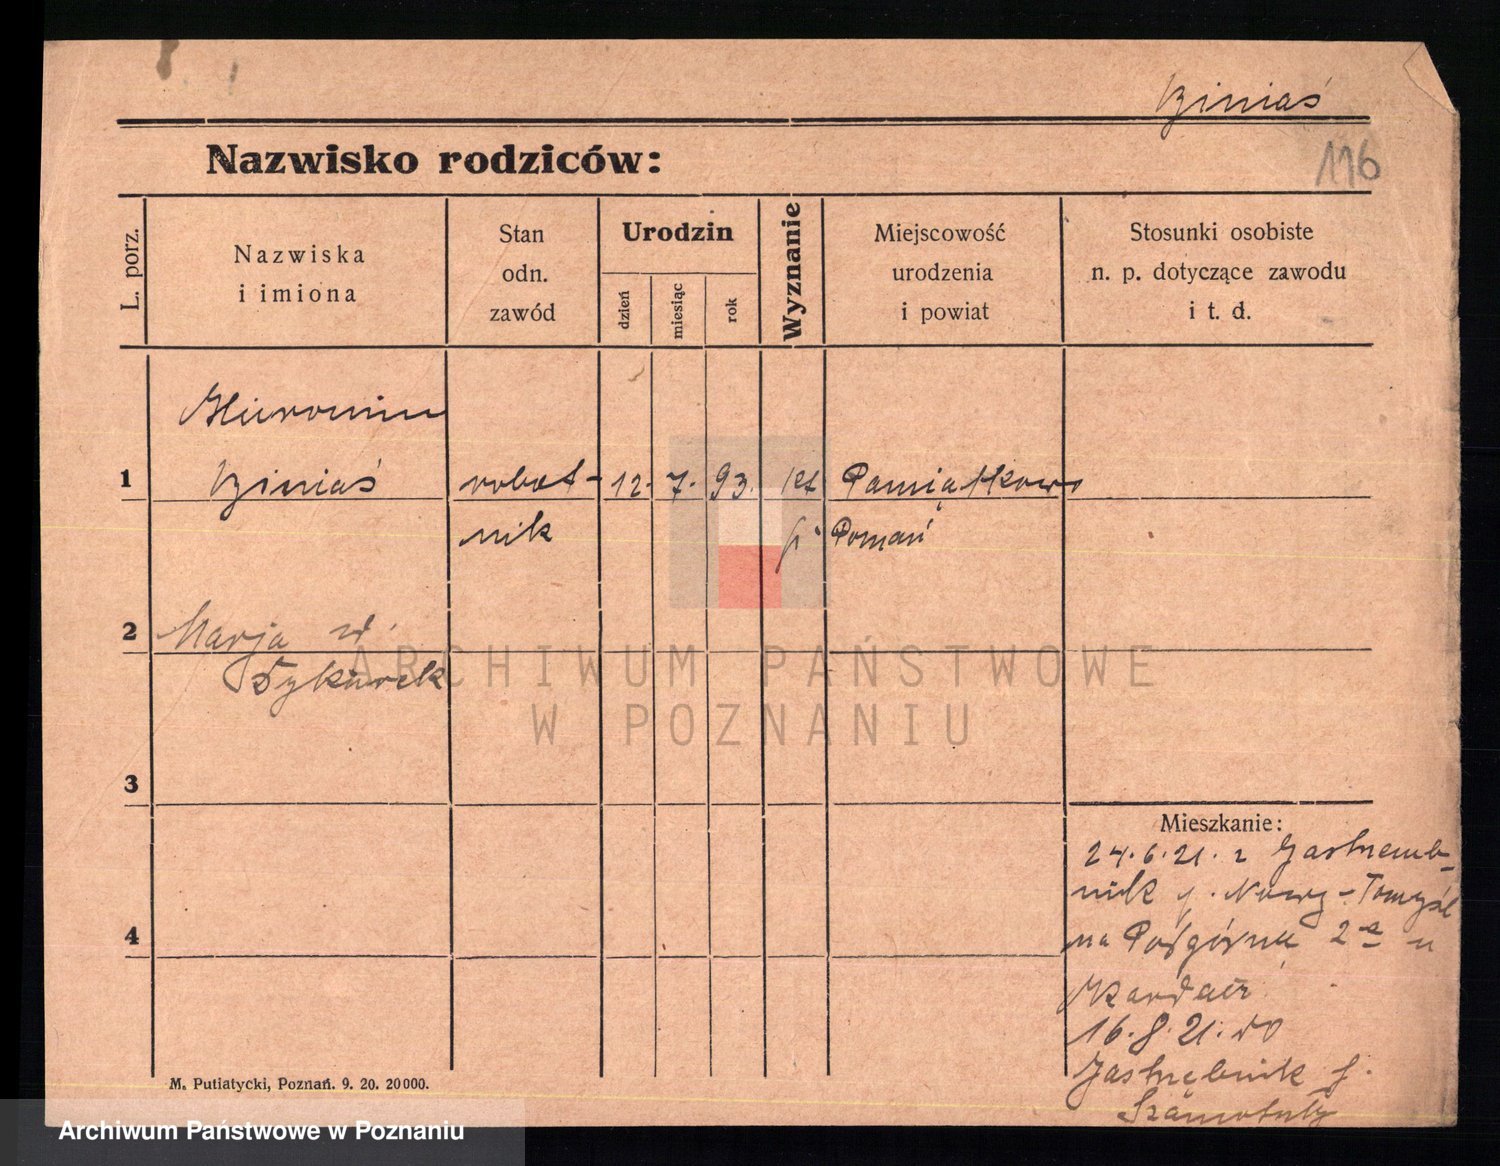 Winiaś
116
Nazwisko rodziców:
L. porz.
Nazwiska
i imiona
Stan
odn.
zawód
Urodzin
dzień
miesiąc
rok
Wyznanie
Miejscowość
urodzenia
i powiat
Stosunki osobiste
n. p. dotyczące zawodu
i t. d.
Hieronim
1 Winiaś robot- 12. 7. 93. kt Pamiątkowo
nik p. Poznań
2 Marja zd.
3
4
Mieszkanie:
24.6.21. z Jastrzemb-
nik p. Nowy-Tomyśl
na Podgórna 2a u
16.8.21. do
Jastrzębnik p.
Szamotuły
M. Putiatycki, Poznań. 9. 20. 20000.
ARCHIWUM PAŃSTWOWE
W POZNANIU
Archiwum Państwowe w Poznaniu